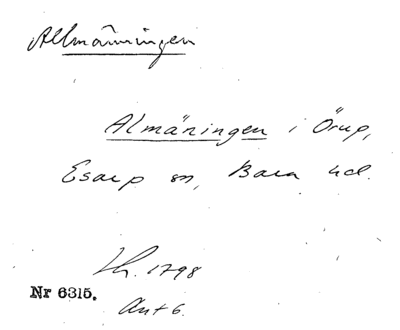 Allmänningen
Almäningen i Örup,
Esarp sn, Bara hd.
Lh. 1798
Nr 6315.
Akt 6.